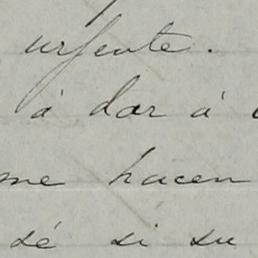 urgente.
á dar á
me hacen
dé si su